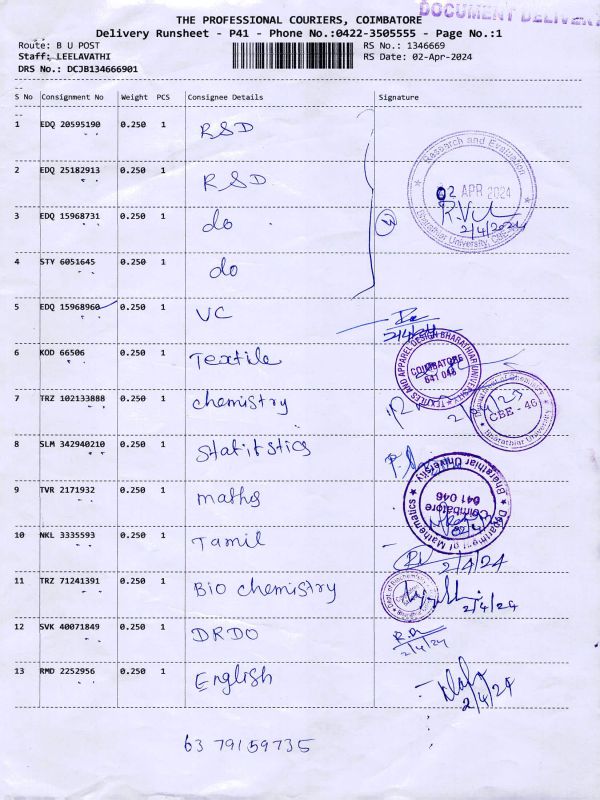 THE PROFESSIONAL COURIERS, COIMBATORE
DOCUMENT DELIVERY
Delivery Runsheet - P41 - Phone No.:0422-3505555 - Page No.:1
Route: B U POST
RS No.: 1346669
Staff: LEELAVATHI
RS Date: 02-Apr-2024
DRS No.: DCJB134666901
S No Consignment No Weight PCS Consignee Details Signature
1 EDQ 20595190 0.250 1 RSD
2 EDQ 25182913 0.250 1 RSD
Research and Evaluation
02 APR 2024
2/4/2024
Bharathiar University, CBE
3 EDQ 15968731 0.250 1 do
4 STY 6051645 0.250 1 do
5 EDQ 15968960 0.250 1 VC
2/4/24
6 KOD 66506 0.250 1 Textile
TEXTILES AND APPAREL DESIGN BHARATHIAR UNIVERSITY
COIMBATORE
641 046
7 TRZ 102133888 0.250 1 chemistry
Department of Chemistry
CBE - 46
Bharathiar University
8 SLM 342940210 0.250 1 Statitstics
9 TVR 2171932 0.250 1 maths
Department of Mathematics
Bharathiar University
Coimbatore
641 046
10 NKL 3335593 0.250 1 Tamil
2/4/24
11 TRZ 71241391 0.250 1 Bio chemistry
2/4/24
12 SVK 40071849 0.250 1 DRDO
2/4/24
13 RMD 2252956 0.250 1 English
2/4/24
63 79159735